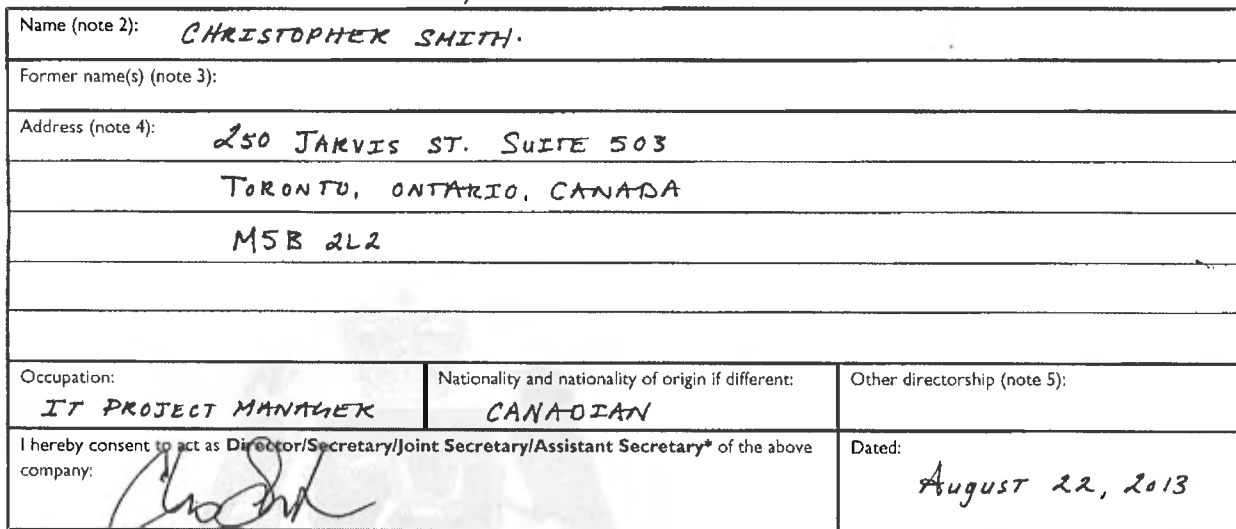 Name (note 2): CHRISTOPHER SMITH.
Former name(s) (note 3):
Address (note 4): 250 JARVIS ST. SUITE 503
TORONTO, ONTARIO, CANADA
M5B 2L2
Occupation:
IT PROJECT MANAGER
Nationality and nationality of origin if different:
CANADIAN
Other directorship (note 5):
I hereby consent to act as Director/Secretary/Joint Secretary/Assistant Secretary* of the above
company:
Dated:
August 22, 2013